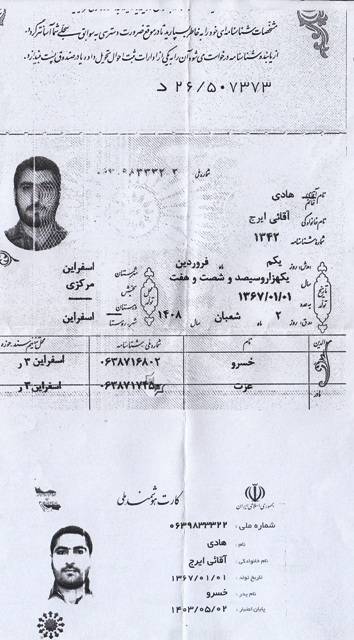 مشخصات شناسنامه‌ای خود را به خاطر بسپارید تا در موقع ضرورت دسترسی به سوابق سجلی شما آسانتر گردد.
از یابنده شناسنامه درخواست می‌شود آن را به یکی از ادارات ثبت احوال تحویل داده یا در صندوق پست بیندازد.
د ۲۶/۵۰۷۳۷۳
شماره ملی
نام آقای خانم هادی
نام خانوادگی آقائی ایرج
شماره شناسنامه ۱۳۴۲
روز یکم ماه فروردین شهرستان اسفراین
سال یکهزاروسیصد و شصت و هفت بخش مرکزی
۱۳۶۷/۰۱/۰۱ دهستان
۲ ماه شعبان سال ۱۴۰۸ شهر/روستا اسفراین
والدین نام شماره ملی/شناسنامه حوزه
پدر خسرو ۰۶۳۸۷۱۶۸۰۲ اسفراین ۳ ر
مادر عزت اسفراین ۳ ر
کارت هوشمند ملی
جمهوری اسلامی ایران
شماره ملی : ۰۶۳۹۸۳۳۳۲۲
نام : هادی
نام خانوادگی : آقائی ایرج
تاریخ تولد : ۱۳۶۷/۰۱/۰۱
نام پدر : خسرو
پایان اعتبار : ۱۴۰۳/۰۵/۰۲